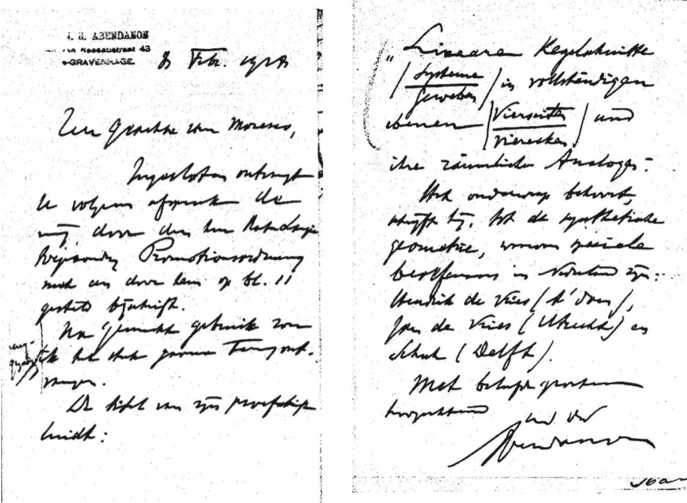 J. H. ABENDANON
Nassaustraat 43
'S-GRAVENHAGE.
8 Febr. 1928
van Moresco,
Ingesloten ontvangt
U volgens afspraak de
mij door den heer
Promotionsordnung
met een door hem op bl. 11
gesteld bijschrift.
Na gemaakt gebruik zou
ik het stuk gaarne terugont-
vangen.
De titel van zijn proefschrift
luidt:
„Lineare Kegelschnitt
(Systeme
Gewebe) in vollständigen
ebenen (Vierseiten
Vierecken) und
ihre räumliche Analoga".
Het onderwerp behoort,
schrijft hij, tot de synthetische
geometrie, waarvan speciale
beoefenaars in Nederland zijn:
Hendrik de Vries (A'dam),
Jan de Vries (Utrecht) en
Schuh (Delft).
Met beleefde groeten
hoogachtend
Abendanon